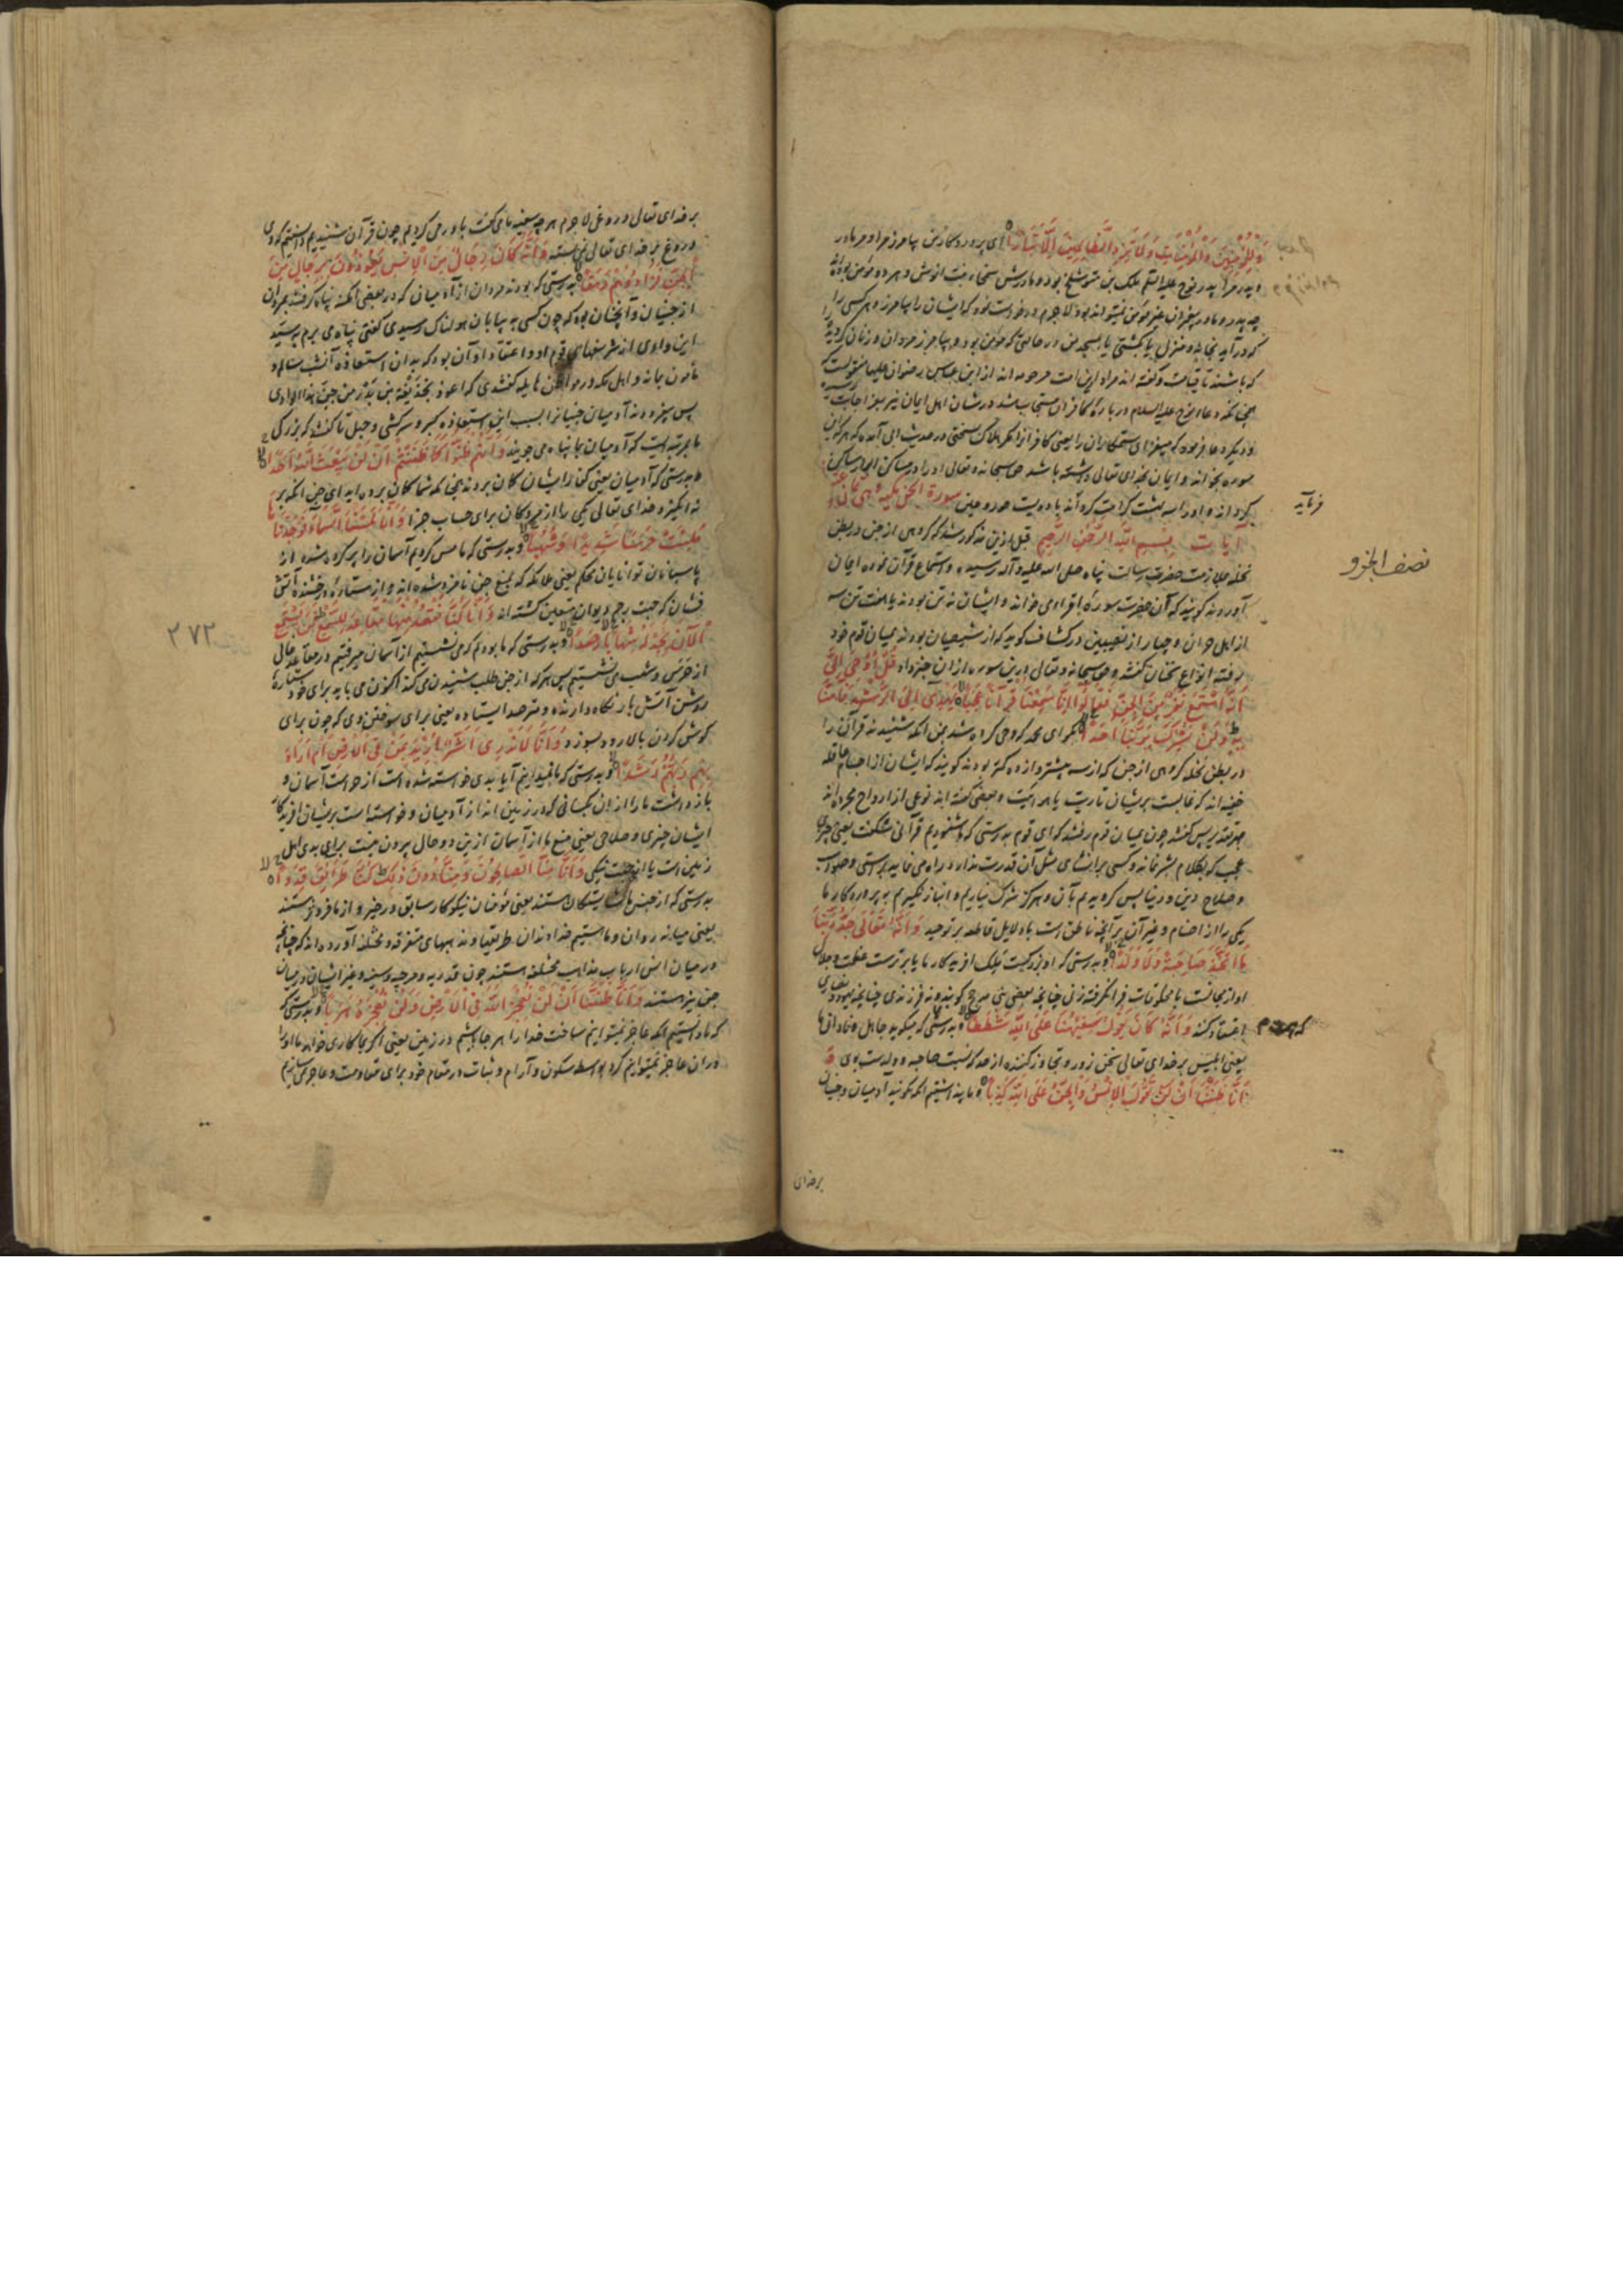 وَلِلْمُؤْمِنِينَ وَالْمُؤْمِنَاتِ وَلَا تَزِدِ الظَّالِمِينَ إِلَّا تَبَارًا ای پروردکار من بیامرز مرا و مر مادر
و پدر مرا پدر نوح علیه السلم ملک بن متوشلخ بود و مادرش سخاء بنت انوش و هر دو مؤمن بوده‌اند
چه پدر و مادر پیغمبران غیر مؤمن نمیتواند بود لاجرم درخواست نمود که ایشان را بیامرز و هر کسی را
که درآید بخانه و منزل یا بکشتی یا بمسجد من در حالتی که مؤمن بود و بیامرز مردان و زنان کرویده
که باشند تا قیامت و گفته‌اند مراد این امت مرحومه اند از ابن عباس رضوان علیها منقولست که
همچنانکه دعاء نوح علیه السلام در بارهٔ کافران مستجاب شد در شان اهل ایمان نیز بعز اجابت
و دیگر دعا فرمود که میفزای ستمکاران را یعنی کافرانرا مکر هلاک سختی در حدیث آمده که هر که این
سوره بخواند و ایمان بخدای تعالی داشته باشد حق سبحانه و تعالی او را در مساکن
کرداند و او را سه بهشت کرامت کرداند با دویست حور و عین سورة الجن مکیه و هی ثمان و
آیات بسم الله الرحمن الرحیم قبل ازین مذکور شد که کروهی از جن در بطن
نخله ملازمت حضرت رسالت پناه صلی الله علیه و آله رسیده و استماع قرآن نموده ایمان
آوردند کویند که آن حضرت سورهٔ اقرا می خواند و ایشان نه تن بودند یا هفت تن سه
از اهل حران و چهار از نصیبین در کشاف کوید که از شیصبان بودند بمیان قوم خود
رفته انواع سخنان کفتند و حق سبحانه و تعالی درین سوره ازان خبر داد قُلْ أُوحِيَ إِلَيَّ
أَنَّهُ اسْتَمَعَ نَفَرٌ مِنَ الْجِنِّ فَقَالُوا إِنَّا سَمِعْنَا قُرْآنًا عَجَبًا يَهْدِي إِلَى الرُّشْدِ فَآمَنَّا
بِهِ وَلَنْ نُشْرِكَ بِرَبِّنَا أَحَدًا بکو ای محمد که وحی کرده شد بمن آنکه شنیدند قرآن را
در بطن نخله کروهی از جن که از سه بیشتر و از ده کمتر بودند کویند که ایشان از اجسام عاقله
خفیه اند که غالبست بریشان ناریت یا هوائیت و بعضی گفته‌اند نوعی از ارواح مجرده اند
پس کفتند چون بمیان قوم رفتند که ای قوم بدرستی که ما شنودیم قرآنی شکفت یعنی چیزی
عجب که بکلام بشر نماند و کسی بر انشای مثل آن قدرت ندارد و راه می نماید براستی و صواب
و صلاح دین و دنیا پس کرویدیم بآن و هرکز شرک نیاریم و انباز نکیریم به پروردکار ما
یکی را از اصنام و غیر آن برآنچه ناطق است با دلایل قاطعه بر توحید وَأَنَّهُ تَعَالَى جَدُّ رَبِّنَا
مَا اتَّخَذَ صَاحِبَةً وَلَا وَلَدًا و بدرستی که او بزرکست ملک افریدکار ما یا برترست عظمت و جلال
او از مجانست با مخلوقات فرا نکرفته زنی چنانچه بعضی کویند و نه فرزندی چنانچه یهود و نصاری
اعتقاد کنند وَأَنَّهُ كَانَ يَقُولُ سَفِيهُنَا عَلَى اللهِ شَطَطًا و بدرستی که میکوید جاهل و نادان ما
یعنی ابلیس بر خدای تعالی سخن زور و تجاوز کننده از حد که نسبت صاحبه و ولدست بوی وَ
أَنَّا ظَنَنَّا أَنْ لَنْ تَقُولَ الْإِنْسُ وَالْجِنُّ عَلَى اللهِ كَذِبًا و ما پنداشتیم آنکه نکویند آدمیان و جنیان
بر خدای
فرماید
نصف الجزو
بر خدای تعالی دروغی لاجرم هر چه سفیه ما می کفت باور می کردیم چون قرآن شنیدیم دانستیم که وی
دروغ بر خدای تعالی می بسته وَأَنَّهُ كَانَ رِجَالٌ مِنَ الْإِنْسِ يَعُوذُونَ بِرِجَالٍ مِنَ
الْجِنِّ فَزَادُوهُمْ رَهَقًا بدرستی که بودند مردان از آدمیان که در بعضی امکنه پناه کرفتند بمردان
از جنیان و آنچنان بود که چون کسی به بیابان هولناک رسیدی کفتی پناه می برم به سید
این وادی از شر سفهای قوم او و اعتقاد او آن بود که بدان استعاذه آنشب بسلامت و
مأمون بماند و اهل مکه در مواطن هایله کفتندی که اعوذ بحذیفة بن بدر من جن هذا الوادی
پس بیفزودند آدمیان جنیانرا بسبب این استعاذه کبر و سرکشی و جهل تا کفتند که بزرکی
ما بمرتبه ایست که آدمیان بما پناه می جویند وَأَنَّهُمْ ظَنُّوا كَمَا ظَنَنْتُمْ أَنْ لَنْ يَبْعَثَ اللهُ أَحَدًا
و بدرستی که آدمیان یعنی کفار ایشان کمان بردند همچنانکه شما کمان برده اید ای جن آنکه بر
نه انکیزد خدای تعالی یکی را از مردکان برای حساب جزا وَأَنَّا لَمَسْنَا السَّمَاءَ فَوَجَدْنَاهَا
مُلِئَتْ حَرَسًا شَدِيدًا وَشُهُبًا و بدرستی که ما مس کردیم آسمان را پر کرده شده از
پاسبانان توانایان محکم یعنی ملائکه که بمنع جن نامزد شده اند و از ستارهٔ درخشنده آتش
فشان که جهت رجم دیوان متعین کشته اند وَأَنَّا كُنَّا نَقْعُدُ مِنْهَا مَقَاعِدَ لِلسَّمْعِ فَمَنْ يَسْتَمِعِ
الْآنَ يَجِدْ لَهُ شِهَابًا رَصَدًا و بدرستی که ما بودیم که می نشستیم از آسمان در مقاعد خالی
از حرس و شهب می نشستیم پس هر که از جن طلب شنیدن می کند اکنون می یابد برای خود ستارهٔ
روشن آتش بار نکاه دارنده و مترصد ایستاده یعنی برای سوختن وی که چون برای
کوش کردن بالا رود بسوزد وَأَنَّا لَا نَدْرِي أَشَرٌّ أُرِيدَ بِمَنْ فِي الْأَرْضِ أَمْ أَرَادَ
بِهِمْ رَبُّهُمْ رَشَدًا و بدرستی که ما نمیدانیم آیا بدی خواسته شده است از حراست آسمان و
بازداشت ما را ازان بکسانی که در زمین اند از آدمیان و خواسته است بریشان افریدکار
ایشان چیزی و صلاحی یعنی منع ما از آسمان ازین دو حال بیرون نیست برای بدی اهل
زمین است یا از جهت نیکی وَأَنَّا مِنَّا الصَّالِحُونَ وَمِنَّا دُونَ ذَلِكَ كُنَّا طَرَائِقَ قِدَدًا
بدرستی که از جنس ما شایستکان هستند یعنی مؤمنان نیکوکار سابق در خیر و از ما فروتر هستند
یعنی میانه روان و ما هستیم خداوندان طریقها و مذهبهای متفرقه و مختلفه آورده اند که چنانچه
در میان انس ارباب مذاهب مختلفه هستند چون قدریه و مرجیه و سنیه و غیر ایشان در میان
جن نیز هستند وَأَنَّا ظَنَنَّا أَنْ لَنْ نُعْجِزَ اللهَ فِي الْأَرْضِ وَلَنْ نُعْجِزَهُ هَرَبًا و بدرستی که
که ما دانستیم آنکه عاجز نمیتوانیم ساخت خدا را هر جا باشیم در زمین یعنی اکر بما کاری خواهد ما او را
دران عاجز نمیتوانیم کرد بواسطه سکون و آرام و ثبات در مقام خود برای مقاومت و عاجز نمی سازیم
۲۷۲